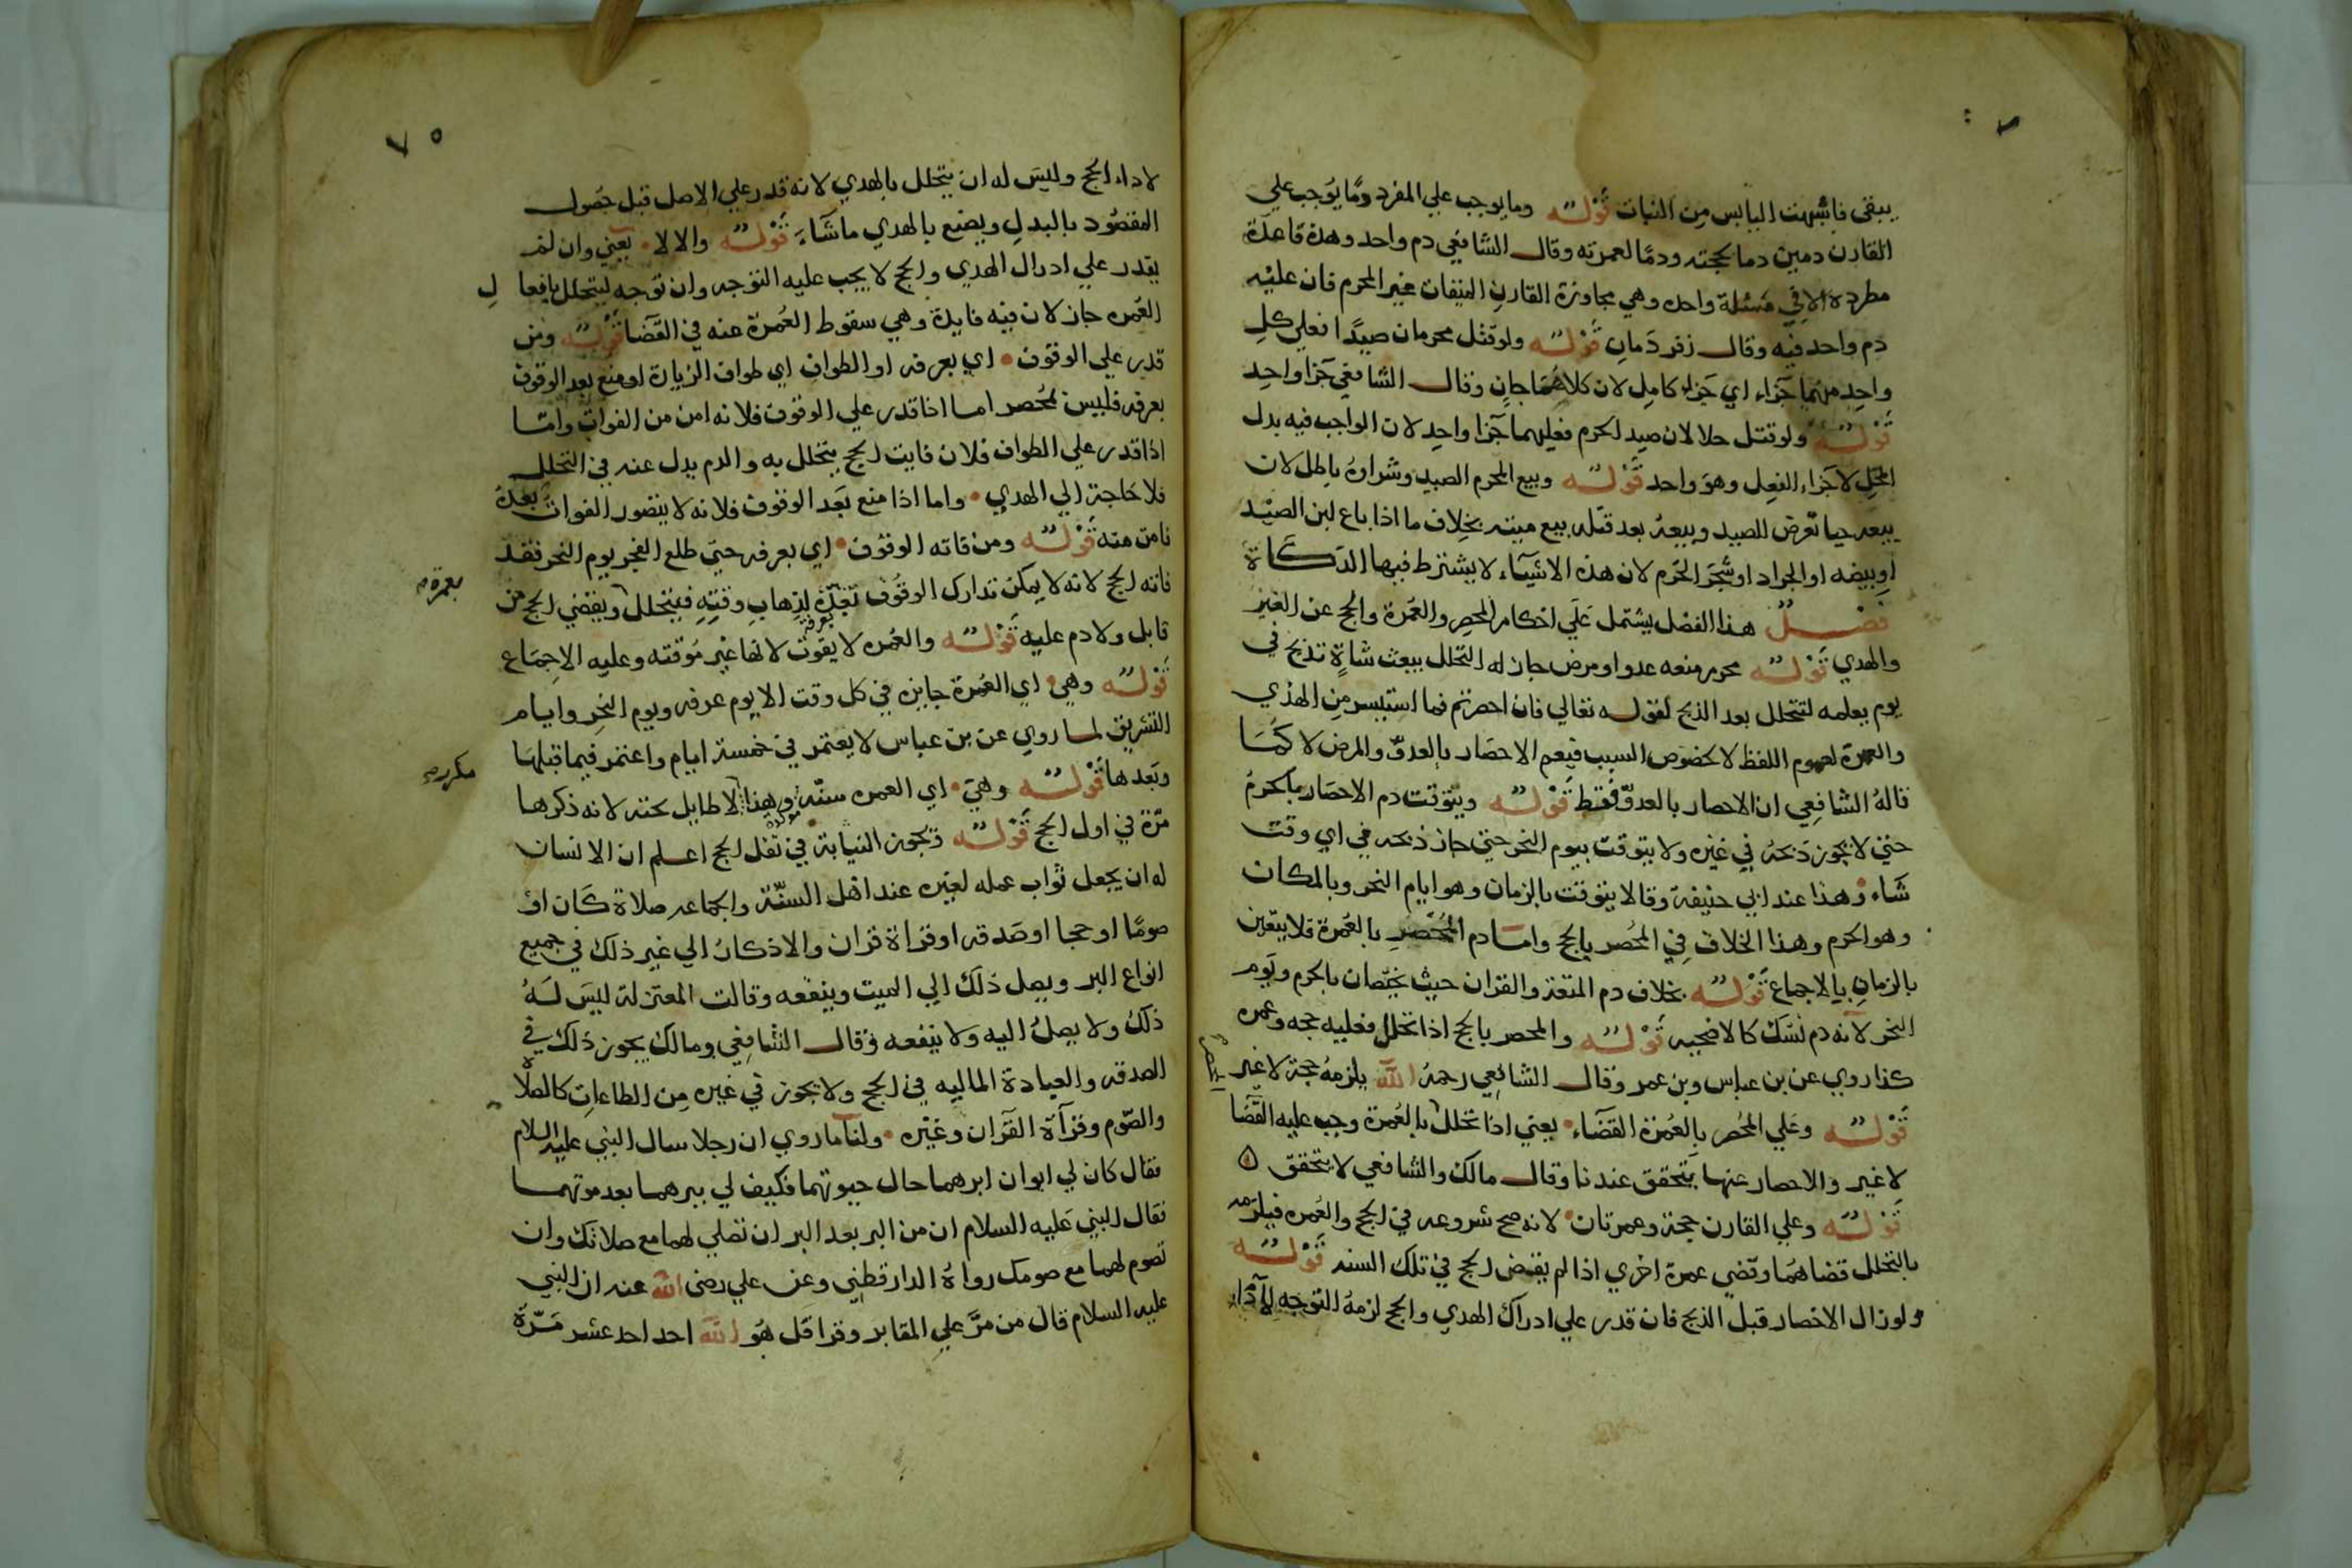 يبقى فاشبهت اليابس من النبات قوله وما يوجب علي المفرد وما يوجب علي
القارن دمين دما لحجته ودما لعمرته وقال الشافعي دم واحد وهذه قاعدة
مطردة الا في مسئلة واحده وهي مجاوزة القارن الميقات غير المحرم فان عليه
دم واحد فيه وقال زفر دمان قوله ولو قتل محرمان صيدا فعلي كل
واحد منهما جزاء اي جزاء كامل لان كلاهما جان وقال الشافعي جزا واحد
قوله ولو قتل حلالان صيد الحرم فعليهما جزا واحد لان الواجب فيه بدل
المحل لا جزاء الفعل وهو واحد قوله وبيع المحرم الصيد وشراوه باطل لان
بيعه حيا تعرض للصيد وبيعه بعد قتله بيع ميته بخلاف ما اذا باع لبن الصيد
او بيضه او الجراد او شجر الحرم لان هذه الاشياء لا يشترط فيها الذكاة
فصل هذا الفصل يشتمل علي احكام المحصر والعمرة والحج عن الغير
والهدي قوله محرم منعه عدو او مرض جاز له التحلل ببعث شاة تذبح في
يوم يعلمه لتتحلل بعد الذبح لقوله تعالي فان احصرتم فما استيسر من الهدي
والعبرة لعموم اللفظ لا لخصوص السبب فيعم الاحصار بالعدو والمرض لا كما
قاله الشافعي ان الاحصار بالعدو فقط قوله ويتوقت دم الاحصار بالحرم
حتي لا يجوز ذبحه في غيره ولا يتوقت بيوم النحر حتي جاز ذبحه في اي وقت
شاء وهذا عند ابي حنيفة وقالا يتوقت بالزمان وهو ايام النحر وبالمكان
وهو الحرم وهذا الخلاف في المحصر بالحج واما دم المحصر بالعمرة فلا يتعين
بالزمان بالاجماع قوله بخلاف دم المتعة والقران حيث يختصان بالحرم ويوم
النحر لانه دم نسك كالاضحيه قوله والمحصر بالحج اذا تحلل فعليه حجه وعمره
كذا روي عن بن عباس وبن عمر وقال الشافعي رحمه الله يلزمه حجة لا غير
قوله وعلي المحصر بالعمرة القضاء يعني اذا تحلل بالعمرة وجب عليه القضا
لا غير والاحصار عنها يتحقق عندنا وقال مالك والشافعي لا يتحقق
قوله وعلي القارن حجة وعمرتان لانه صح شروعه في الحج والعمره فيلزمه
بالتحلل قضاهما وقضي عمرة اخري اذا لم يقض الحج في تلك السنه قوله
ولو زال الاحصار قبل الذبح فان قدر علي ادراك الهدي والحج لزمه التوجه لادا
٧٥
لاداء الحج وليس له ان يتحلل بالهدي لانه قدر علي الاصل قبل حصول
المقصود بالبدل ويصنع بالهدي ما شاء قوله والا لا يعني وان لم
يقدر علي ادراك الهدي والحج لا يجب عليه التوجه وان توجه ليتحلل بافعال
العمره جاز لان فيه فايدة وهي سقوط العمرة عنه في القضا قوله ومن
قدر علي الوقوف اي بعرفه او الطواف اي طواف الزيارة او منع بعد الوقوف
بعرفه فليس بمحصر اما اذا قدر علي الوقوف فلانه امن من الفوات واما
اذا قدر علي الطواف فلان فايت الحج يتحلل به والدم بدل عنه في التحلل
فلا حاجة الي الهدي واما اذا منع بعد الوقوف فلانه لا يتصور الفوات بعده
فامن منه قوله ومن فاته الوقوف اي بعرفه حتي طلع الفجر يوم النحر فقد
فاته الحج لانه لا يمكن تدارك الوقوف بعده لذهاب وقته فيتحلل ويقضي الحج من
بعمرة
قابل ولا دم عليه قوله والعمره لا يفوت لانها غير موقته وعليه الاجماع
قوله وهي اي العمرة جايزه في كل وقت الا يوم عرفه ويوم النحر وايام
التشريق لما روي عن بن عباس لا يعتمر في خمسة ايام واعتمر فيما قبلها
مكرر
وبعدها قوله وهي اي العمره سنة مؤكده وهذا لا طايل تحته لانه ذكرها
مرة في اول الحج قوله وتجوز النيابة في نفل الحج اعلم ان الانسان
له ان يجعل ثواب عمله لغيره عند اهل السنة والجماعه صلاة كان او
صوما او حجا او صدقه او قراة قران والاذكار الي غير ذلك في جميع
انواع البر ويصل ذلك الي الميت وينفعه وقالت المعتزلة ليس له
ذلك ولا يصل اليه ولا ينفعه وقال الشافعي ومالك يجوز ذلك في
الصدقه والعبادة الماليه في الحج ولا يجوز في غيره من الطاعات كالصلاة
والصوم وقراة القران وغيره ولنا ما روي ان رجلا سال النبي عليه السلام
فقال كان لي ابوان ابرهما حال حيوتهما فكيف لي ببرهما بعد موتهما
فقال النبي عليه السلام ان من البر بعد البر ان تصلي لهما مع صلاتك وان
تصوم لهما مع صومك رواه الدارقطني وعن علي رضى الله عنه ان النبي
عليه السلام قال من مر علي المقابر وقرا قل هو الله احد احد عشر مرة